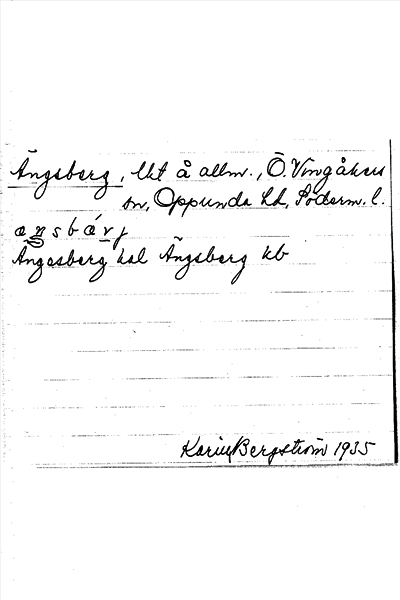 Ängsberg, lht å allm., Ö. Vingåkers
sn, Oppunda hd, Söderm. l.
äŋsbárj
Ängesberg hal Ängsberg kb
Karin Bergström 1935